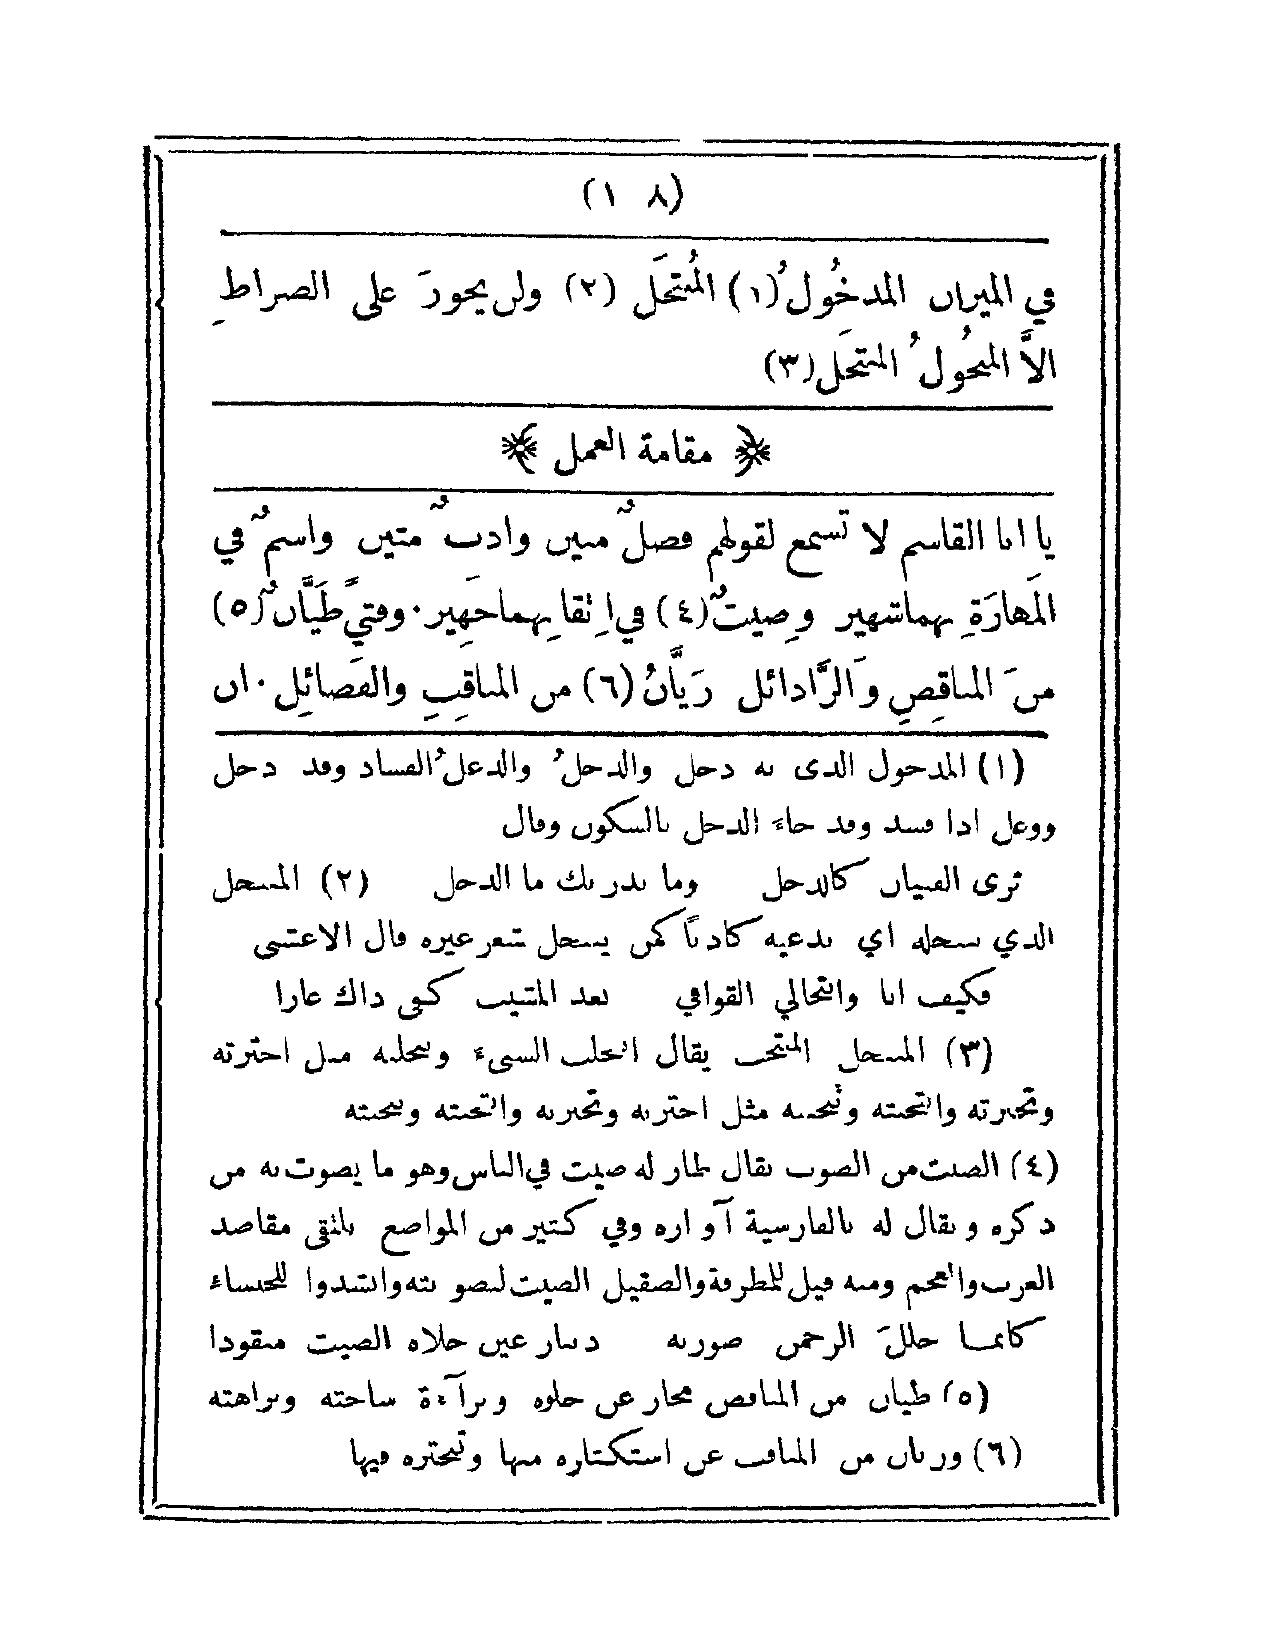 (١٠٨)
في الميزان المدخُولُ (١) المُنتحَل (٢) ولن يجوزَ على الصراطِ
الاَّ المنحُولُ المنتخَل (٣)
﴿ مقامة العمل ﴾
يا ابا القاسم لا تَسمع لقولهم فضلٌ مبين وادبٌ متين واسمٌ في
المَهارَةِ بهما شهير وصِيتٌ (٤) في اِتقانِهما جَهِير. وفتىً طَيَّانٌ (٥)
منَ المناقِصِ وَالرَّذائل رَيَّانُ (٦) من المناقِبِ والفَضائِل. ان
(١) المدخول الذى به دخل والدخلُ والدغلُ الفساد وقد دخل
ووغل اذا فسد وقد جاءَ الدخل بالسكون وقال
ترى الفتيان كالنخل وما يدريك ما الدخل (٢) المنتحل
الذي ينتحله اي يدعيه كاذباً كمن ينتحل شعر غيره قال الاعشى
فكيف انا وانتحالي القوافي بعد المشيب كفى ذاك عارا
(٣) المنتخل المنتخب يقال انتخلت الشيء وتنخلته مثل اخترته
وتخيرته وانتخبته وتنخبته مثل اخترته وتخيرته وانتخبته وتنخبته
(٤) الصيت من الصوت يقال طار له صيت في الناس وهو ما يصوت به من
ذكره و يقال له بالفارسية آو ازه وفي كثير من المواضع يلتقى مقاصد
العرب والعجم ومنه قيل للمطرقة والصقيل الصيت لتصو يته وانشدوا للخنساء
كانما خللَ الرحمن صورته دينار عين جلاه الصيت منقودا
(٥) طيان من المناقص مجاز عن خلوه وبرآءة ساحته ونزاهته
(٦) وريان من المناقب عن استكثاره منها وتبحره فيها